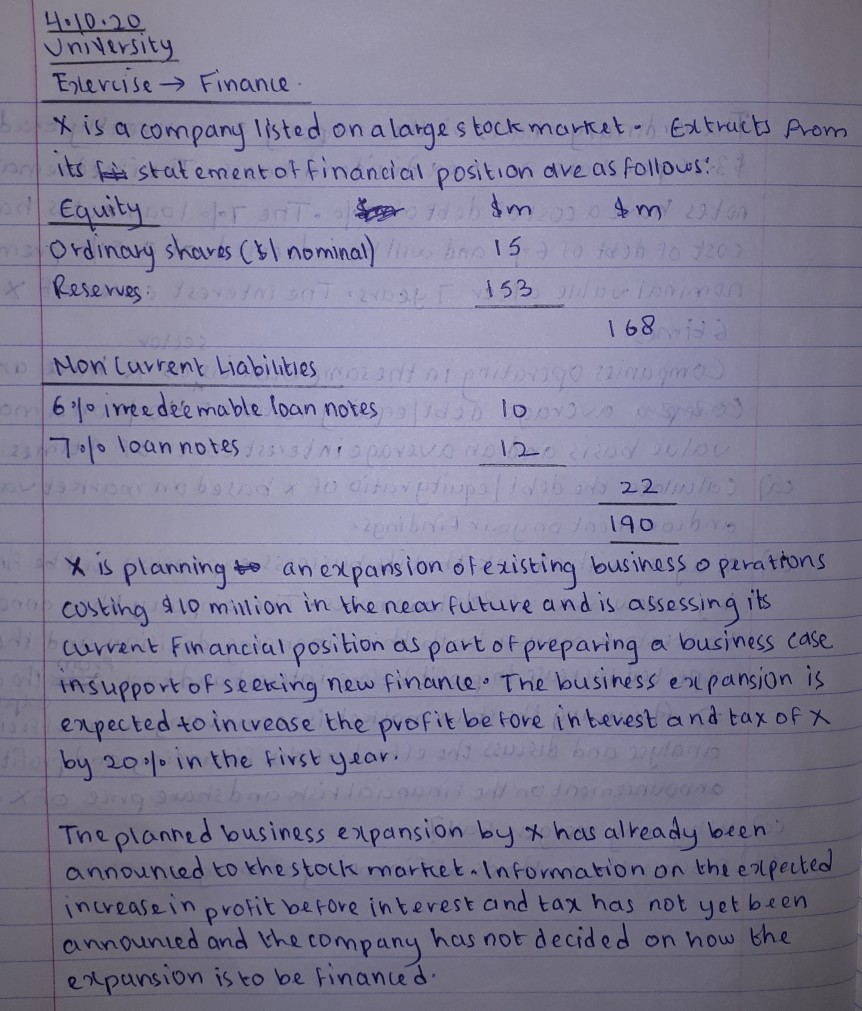 4.10.20
University
Exercise → Finance.
X is a company listed on a large stock market. Extracts from
its statement of financial position are as follows:
Equity $m $m
Ordinary shares ($1 nominal) 15
Reserves: 153
168
Non Current Liabilities
6% irreedeemable loan notes 10
7% loan notes 12
22
190
X is planning an expansion of existing business operations
costing $10 million in the near future and is assessing its
current financial position as part of preparing a business case
in support of seeking new finance. The business expansion is
expected to increase the profit before interest and tax of X
by 20% in the first year.
The planned business expansion by X has already been
announced to the stock market. Information on the expected
increase in profit before interest and tax has not yet been
announced and the company has not decided on how the
expansion is to be financed.